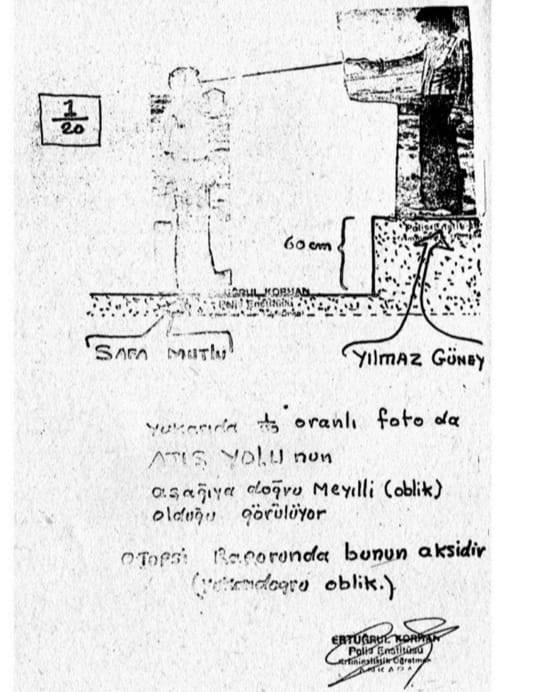 1
20
60 cm
ERTUĞRUL KORHAN
SAFA MUTLU
YILMAZ GÜNEY
yukarıda oranlı foto da
ATIŞ YOLU nun
aşağıya doğru Meyilli (oblik)
olduğu görülüyor
OTOPSİ Raporunda bunun aksidir
(yukarıdoğru oblik.)
ERTUĞRUL KORHAN
Polis Enstitüsü
Kriminalistik Öğretmeni
ANKARA